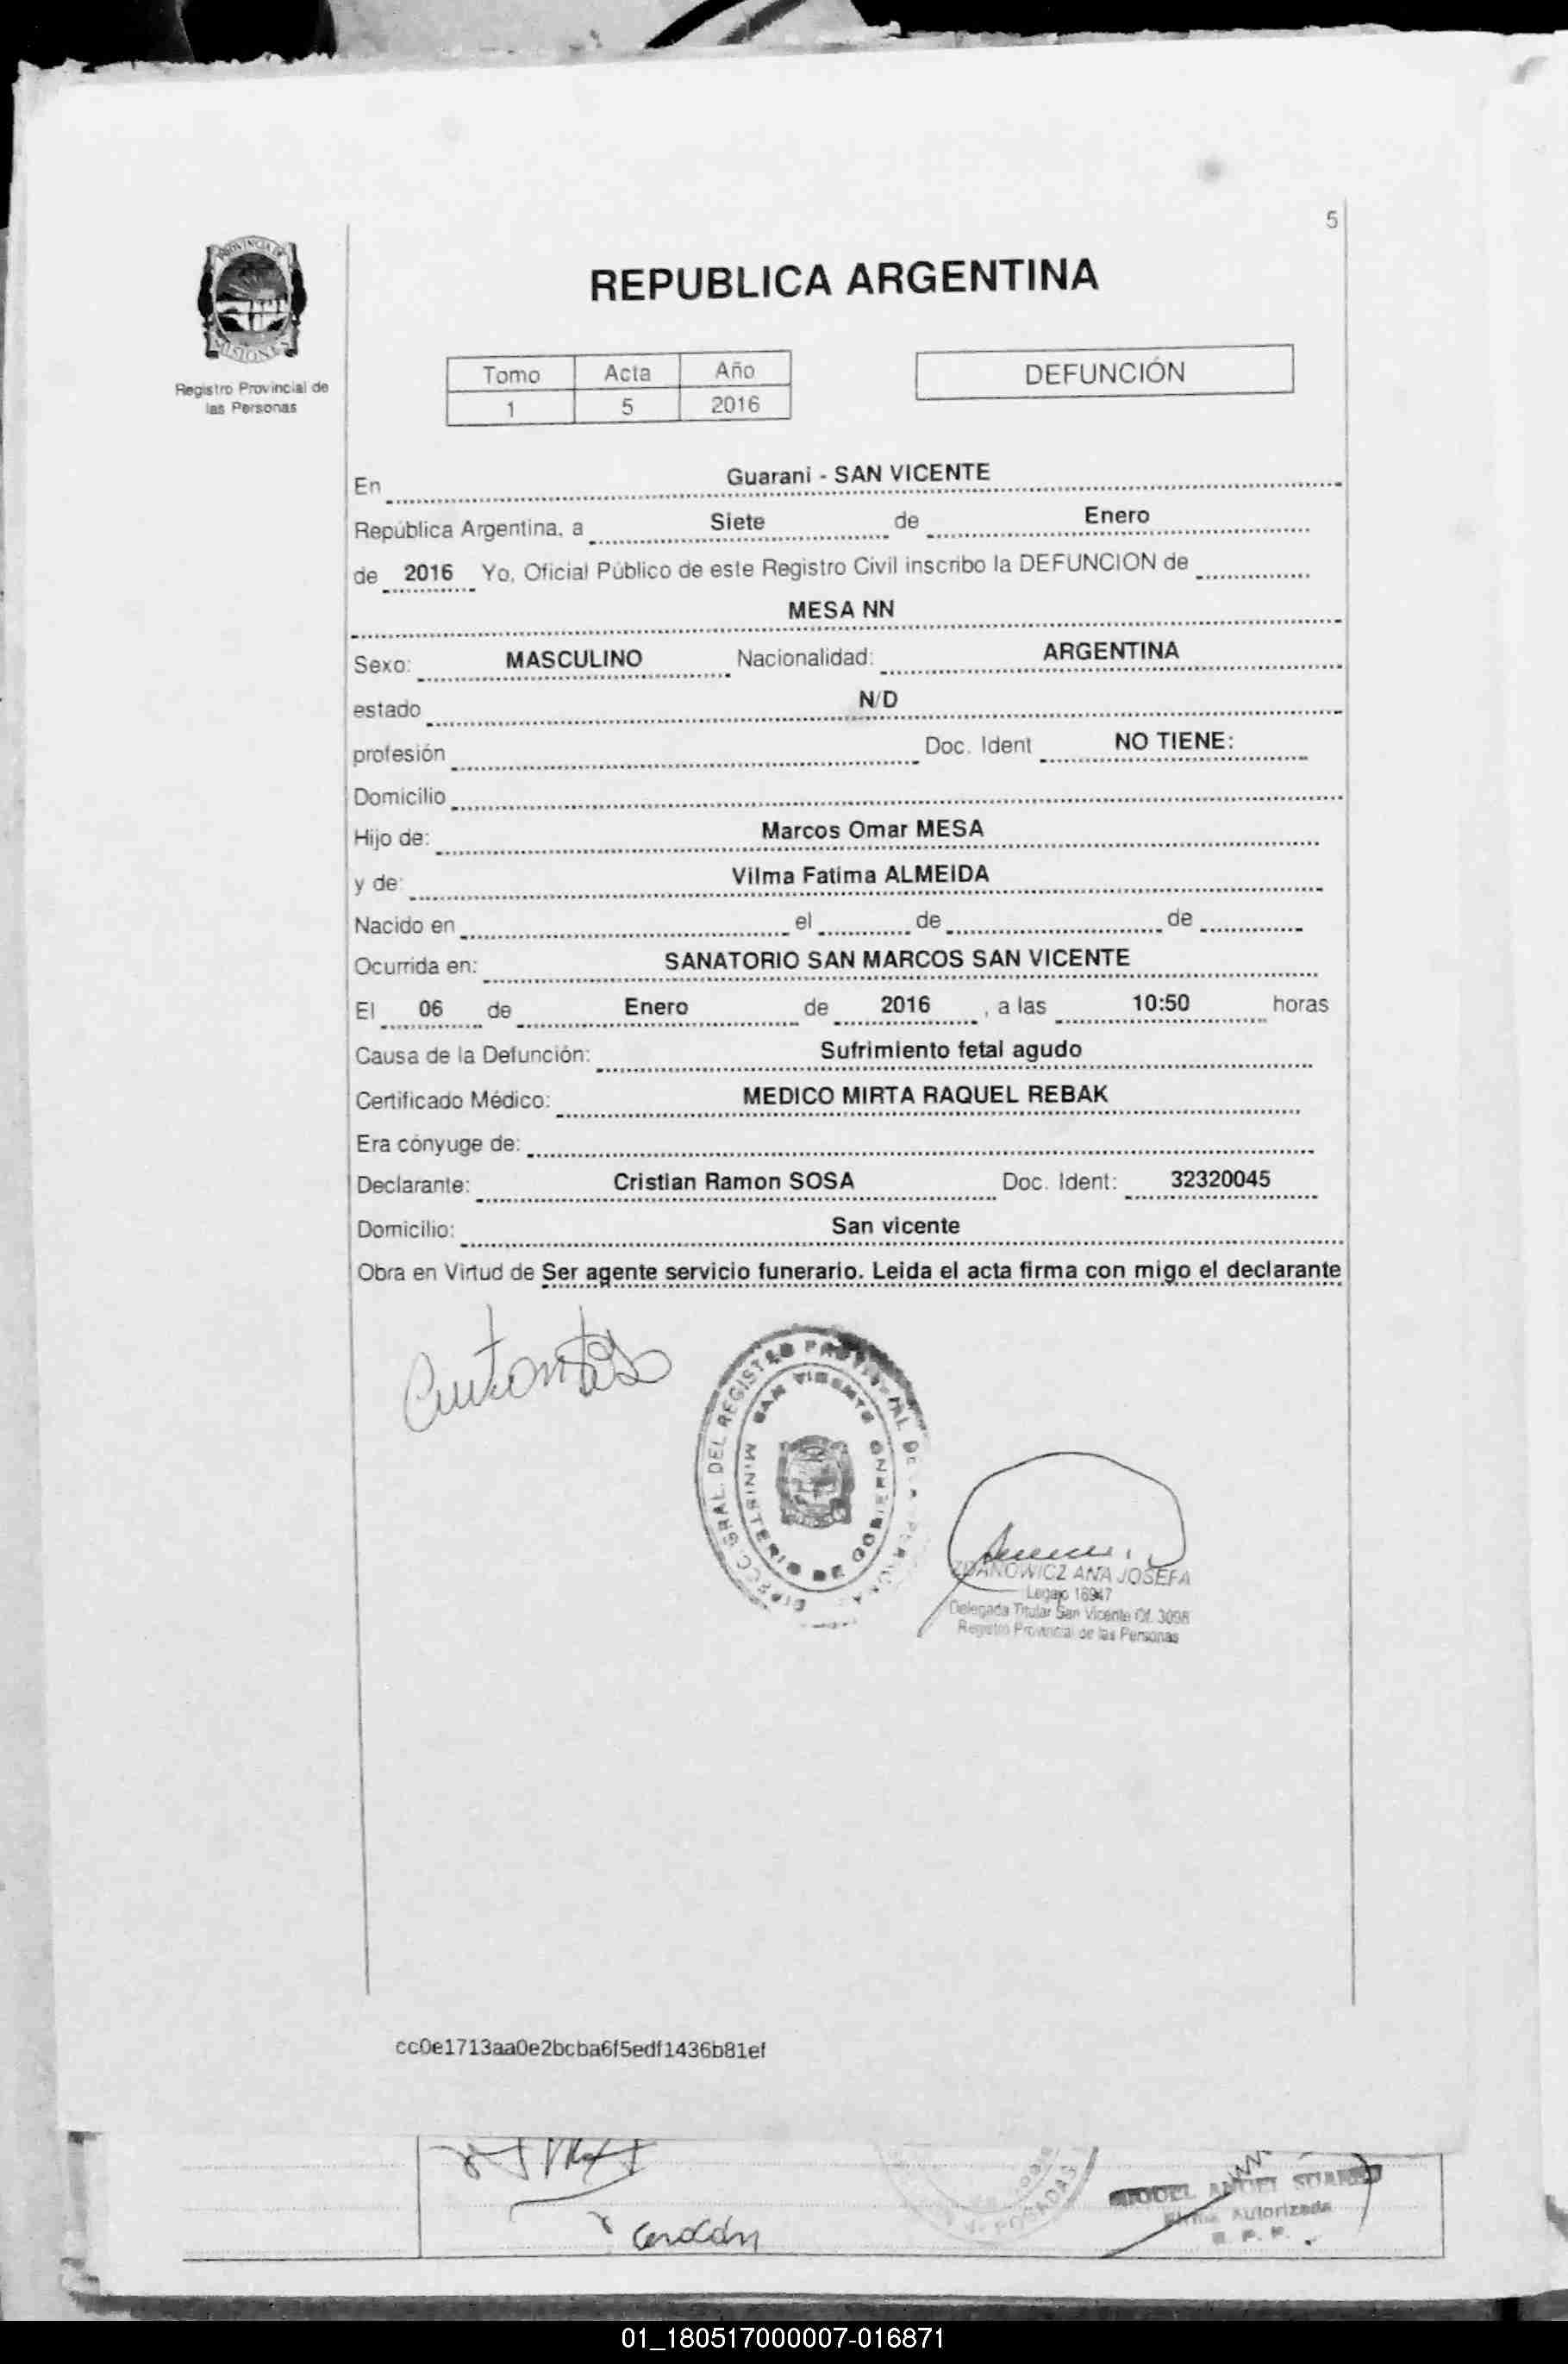 5
PROVINCIA DE
MISIONES
Registro Provincial de
las Personas
REPUBLICA ARGENTINA
Tomo Acta Año
1 5 2016
DEFUNCIÓN
En Guarani - SAN VICENTE
República Argentina, a Siete de Enero
de 2016 Yo, Oficial Público de este Registro Civil inscribo la DEFUNCION de
MESA NN
Sexo: MASCULINO Nacionalidad: ARGENTINA
estado N/D
profesión Doc. Ident NO TIENE:
Domicilio
Hijo de: Marcos Omar MESA
y de: Vilma Fatima ALMEIDA
Nacido en el de de
Ocurrida en: SANATORIO SAN MARCOS SAN VICENTE
El 06 de Enero de 2016 , a las 10:50 horas
Causa de la Defunción: Sufrimiento fetal agudo
Certificado Médico: MEDICO MIRTA RAQUEL REBAK
Era cónyuge de:
Declarante: Cristian Ramon SOSA Doc. Ident: 32320045
Domicilio: San vicente
Obra en Virtud de Ser agente servicio funerario. Leida el acta firma con migo el declarante
DIRECC. GRAL. DEL REGISTRO PROVINCIAL DE
SAN VICENTE
MINISTERIO DE GOBIERNO
ZDANOWICZ ANA JOSEFA
Legajo 16947
Delegada Titular San Vicente Of. 3098
Registro Provincial de las Personas
cc0e1713aa0e2bcba6f5edf1436b81ef
POSADAS
MIGUEL ANGEL SUAREZ
Firma Autorizada
01_180517000007-016871